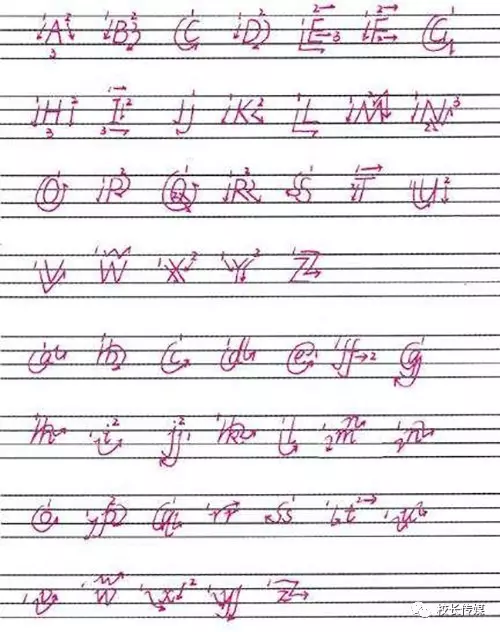 A B C D E F G
H I J K L M N
O P Q R S T U
V W X Y Z
a b c d e f g
h i j k l m n
o p q r s t u
v w x y z
校长传媒